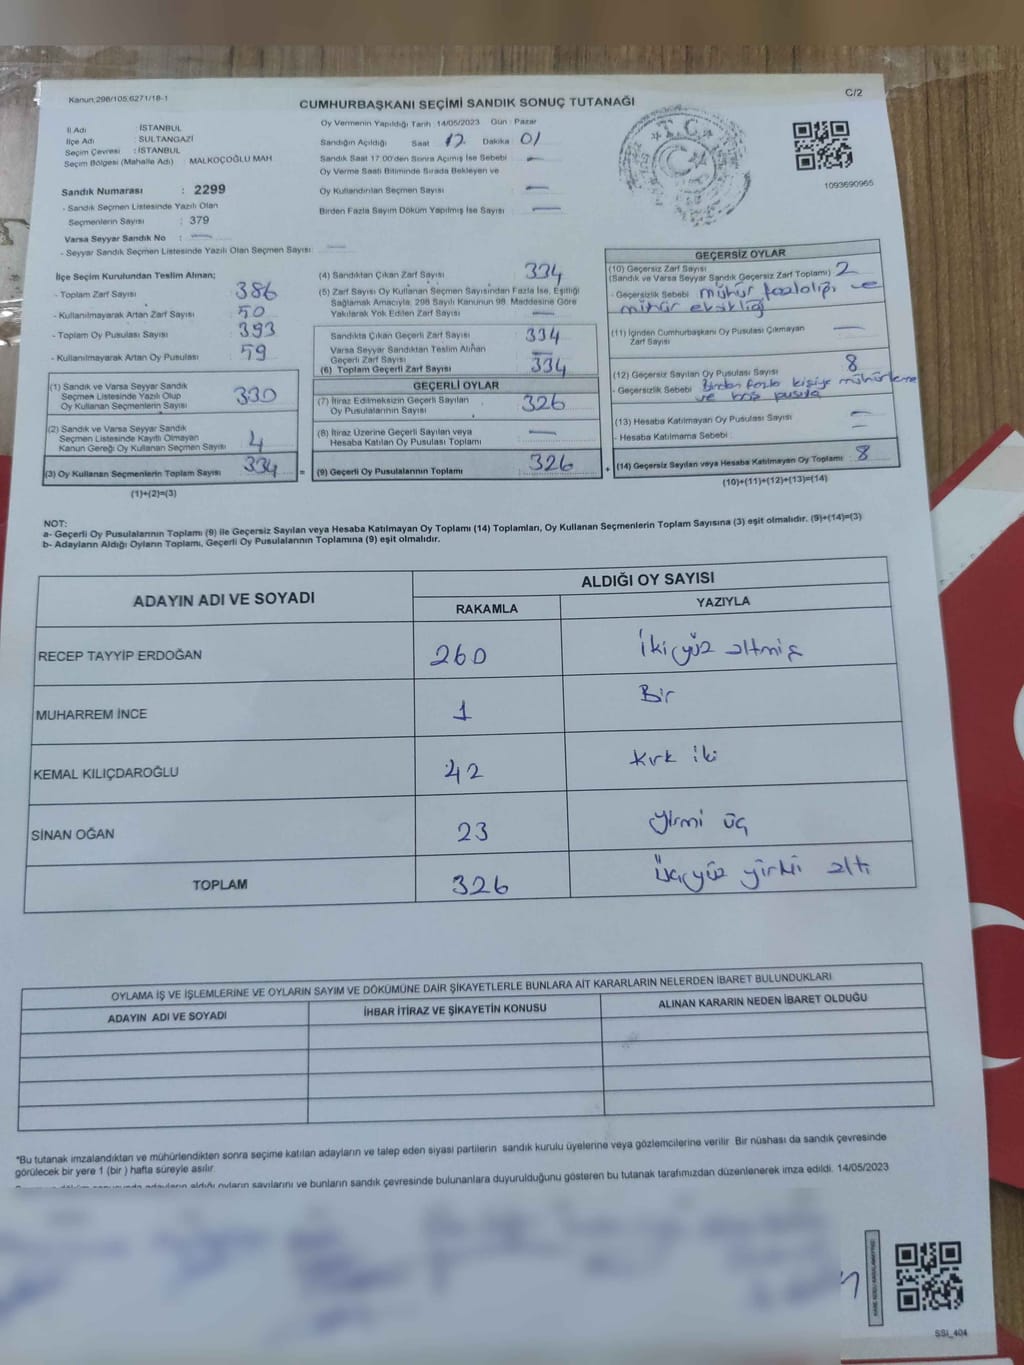 Kanun:298/105;6271/18-1
C/2
CUMHURBAŞKANI SEÇİMİ SANDIK SONUÇ TUTANAĞI
İl Adı : İSTANBUL
İlçe Adı : SULTANGAZİ
Seçim Çevresi : İSTANBUL
Seçim Bölgesi (Mahalle Adı) : MALKOÇOĞLU MAH
Sandık Numarası : 2299
- Sandık Seçmen Listesinde Yazılı Olan
Seçmenlerin Sayısı : 379
Varsa Seyyar Sandık No : —
- Seyyar Sandık Seçmen Listesinde Yazılı Olan Seçmen Sayısı: —
Oy Vermenin Yapıldığı Tarih :14/05/2023 Gün : Pazar
Sandığın Açıldığı Saat : 17 Dakika : 01
Sandık Saat 17:00'den Sonra Açımış İse Sebebi : —
Oy Verme Saati Bitiminde Sırada Bekleyen ve
Oy Kullandırılan Seçmen Sayısı : —
Birden Fazla Sayım Döküm Yapılmış İse Sayısı : —
T.C.
1093690965
İlçe Seçim Kurulundan Teslim Alınan;
- Toplam Zarf Sayısı : 386
- Kullanılmayarak Artan Zarf Sayısı : 50
- Toplam Oy Pusulası Sayısı : 393
- Kullanılmayarak Artan Oy Pusulası : 59
(1) Sandık ve Varsa Seyyar Sandık
Seçmen Listesinde Yazılı Olup
Oy Kullanan Seçmenlerin Sayısı : 330
(2) Sandık ve Varsa Seyyar Sandık
Seçmen Listesinde Kayıtlı Olmayan
Kanun Gereği Oy Kullanan Seçmen Sayısı : 4
(3) Oy Kullanan Seçmenlerin Toplam Sayısı : 334
(1)+(2)=(3)
(4) Sandıktan Çıkan Zarf Sayısı : 334
(5) Zarf Sayısı Oy Kullanan Seçmen Sayısından Fazla İse, Eşitliği
Sağlamak Amacıyla, 298 Sayılı Kanunun 98. Maddesine Göre
Yakılarak Yok Edilen Zarf Sayısı : —
Sandıkta Çıkan Geçerli Zarf Sayısı : 334
Varsa Seyyar Sandıktan Teslim Alınan
Geçerli Zarf Sayısı : —
(6) Toplam Geçerli Zarf Sayısı : 334
GEÇERLİ OYLAR
(7) İtiraz Edilmeksizin Geçerli Sayılan
Oy Pusulalarının Sayısı : 326
(8) İtiraz Üzerine Geçerli Sayılan veya
Hesaba Katılan Oy Pusulası Toplamı : —
(9) Geçerli Oy Pusulalarının Toplamı : 326
GEÇERSİZ OYLAR
(10) Geçersiz Zarf Sayısı
(Sandık ve Varsa Seyyar Sandık Geçersiz Zarf Toplamı) : 2
- Geçersizlik Sebebi : mühür fazlalığı ve
mühür eksikliği
(11) İçinden Cumhurbaşkanı Oy Pusulası Çıkmayan
Zarf Sayısı : —
(12) Geçersiz Sayılan Oy Pusulası Sayısı : 8
- Geçersizlik Sebebi : Birden fazla kişiye mühürleme
ve boş pusula
(13) Hesaba Katılmayan Oy Pusulası Sayısı : —
- Hesaba Katılmama Sebebi : —
(14) Geçersiz Sayılan veya Hesaba Katılmayan Oy Toplamı : 8
(10)+(11)+(12)+(13)=(14)
NOT:
a- Geçerli Oy Pusulalarının Toplamı (9) ile Geçersiz Sayılan veya Hesaba Katılmayan Oy Toplamı (14) Toplamları, Oy Kullanan Seçmenlerin Toplam Sayısına (3) eşit olmalıdır. (9)+(14)=(3)
b- Adayların Aldığı Oyların Toplamı, Geçerli Oy Pusulalarının Toplamına (9) eşit olmalıdır.
ADAYIN ADI VE SOYADI
ALDIĞI OY SAYISI
RAKAMLA YAZIYLA
RECEP TAYYİP ERDOĞAN 260 ikiyüz altmış
MUHARREM İNCE 1 Bir
KEMAL KILIÇDAROĞLU 42 kırk iki
SİNAN OĞAN 23 yirmi üç
TOPLAM 326 üçyüz yirmi altı
OYLAMA İŞ VE İŞLEMLERİNE VE OYLARIN SAYIM VE DÖKÜMÜNE DAİR ŞİKAYETLERLE BUNLARA AİT KARARLARIN NELERDEN İBARET BULUNDUKLARI
ADAYIN ADI VE SOYADI İHBAR İTİRAZ VE ŞİKAYETİN KONUSU ALINAN KARARIN NEDEN İBARET OLDUĞU
*Bu tutanak imzalandıktan ve mühürlendikten sonra seçime katılan adayların ve talep eden siyasi partilerin sandık kurulu üyelerine veya gözlemcilerine verilir. Bir nüshası da sandık çevresinde
görülecek bir yere 1 (bir ) hafta süreyle asılır.
adayların aldığı oyların sayılarını ve bunların sandık çevresinde bulunanlara duyurulduğunu gösteren bu tutanak tarafımızdan düzenlenerek imza edildi. 14/05/2023
SSİ_404